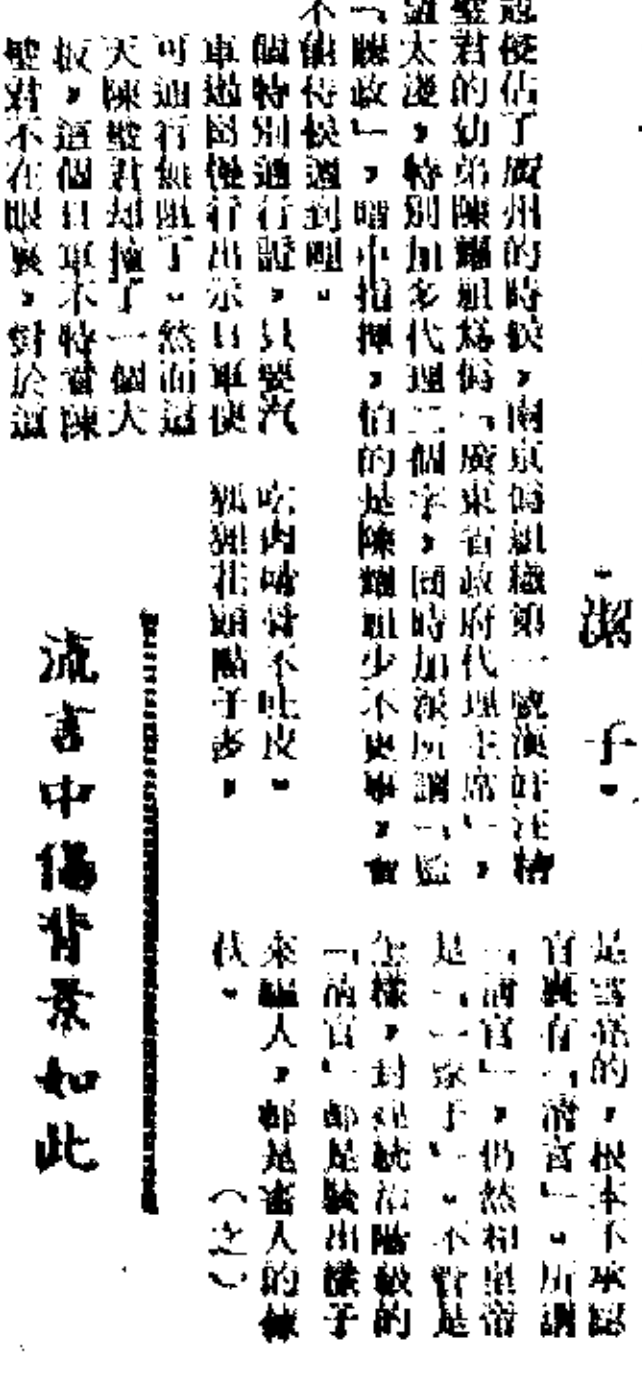 潔子。
寇侵佔了廣州的時候，南京偽組織第一號漢奸汪精
璧君的幼弟陳耀祖為偽「廣東省政府代理主席」，
太淺，特別加多代理二個字，同時加派所謂「監
「聽政」，暗中指揮，怕的是陳耀祖少不更事，
不能侍候週到哩。
個特別通行證，只要汽
車過崗慢行出示日軍便
可通行無阻了。然而這
天陳璧君却撞了一個大
板，這個日軍不特當陳
璧君不在眼裏，對於這
吃肉啃骨不吐皮。
狐狸壯頭點子多，
是雪亮的，根本不承認
官裏有「清官」。所謂
「清官」，仍然和皇帝
是「一家子」。不管是
怎樣，封建統治階級的
「清官」都是裝出樣子
來騙人，都是害人的傢
伙。（之）
流言中傷背景如此